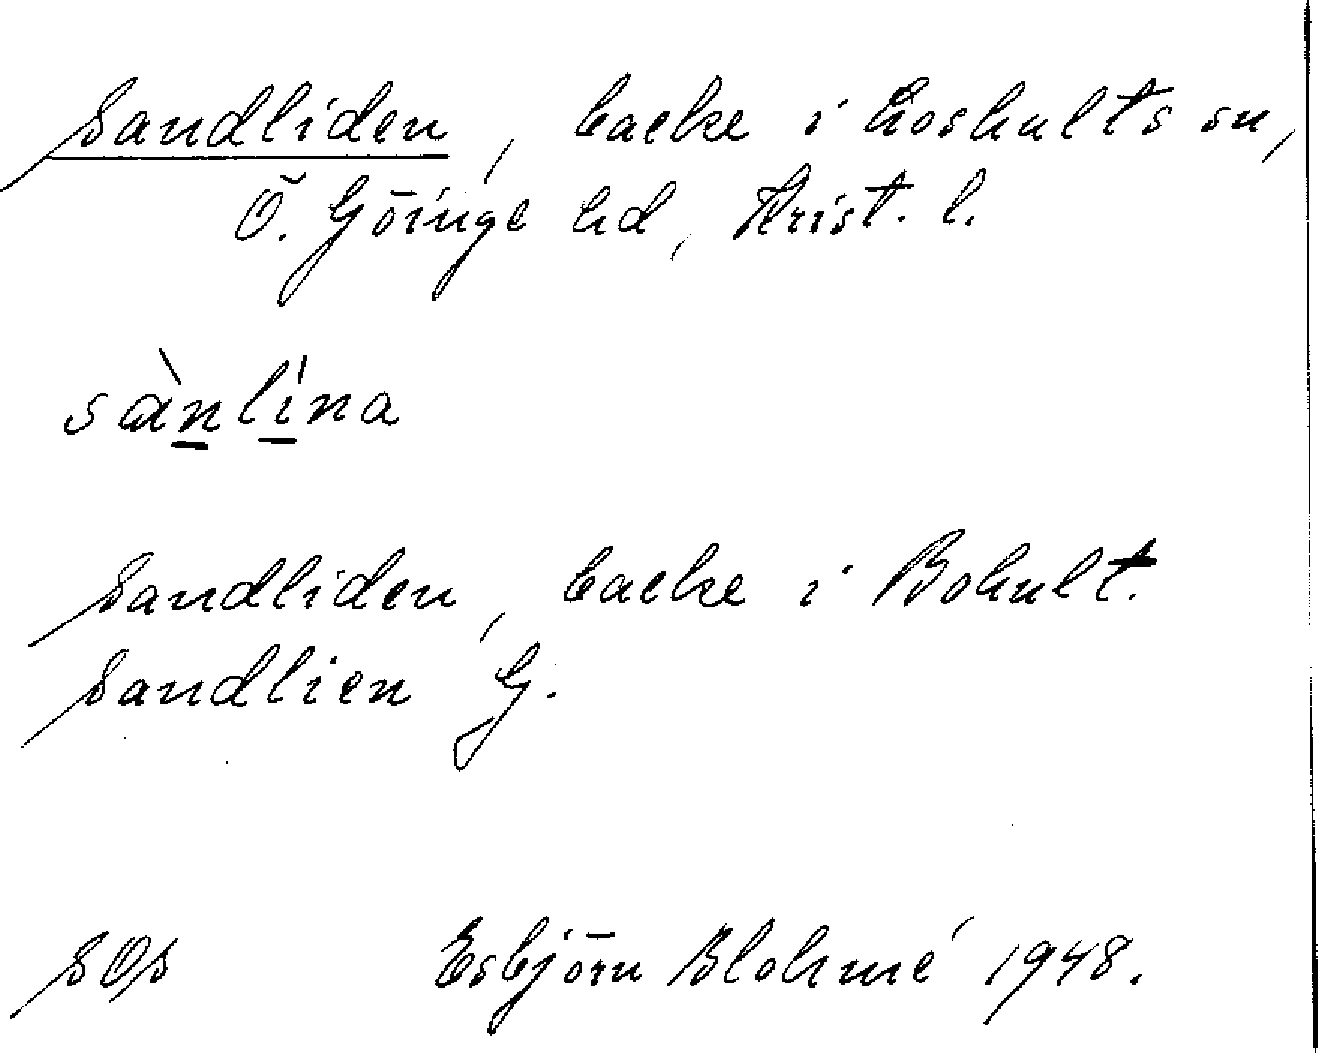 Sandliden, backe i Loshults sn,
Ö. Göinge hd, Krist. l.
sànlína
Sandliden, backe i Bohult.
Sandlien G.
SOs Esbjörn Blohmé 1948.